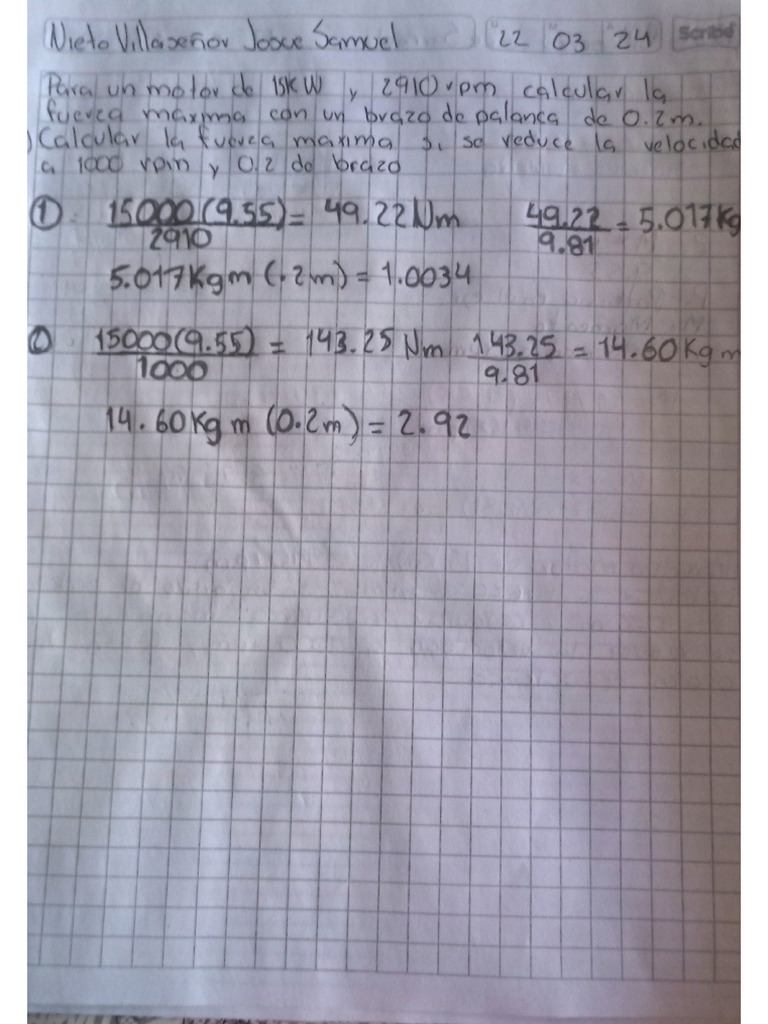 Nieto Villaseñor Josue Samuel 22 03 24 Scribe
Para un motor de 15KW y 2910 rpm calcular la
fuerza maxima con un brazo de palanca de 0.2m.
Calcular la fuerza maxima si se reduce la velocidad
a 1000 rpm y 0.2 de brazo
① 15000(9.55)/2910 = 49.22 Nm 49.22/9.81 = 5.017Kg
5.017Kgm (.2m) = 1.0034
② 15000(9.55)/1000 = 143.25 Nm 143.25/9.81 = 14.60Kgm
14.60Kgm (0.2m) = 2.92